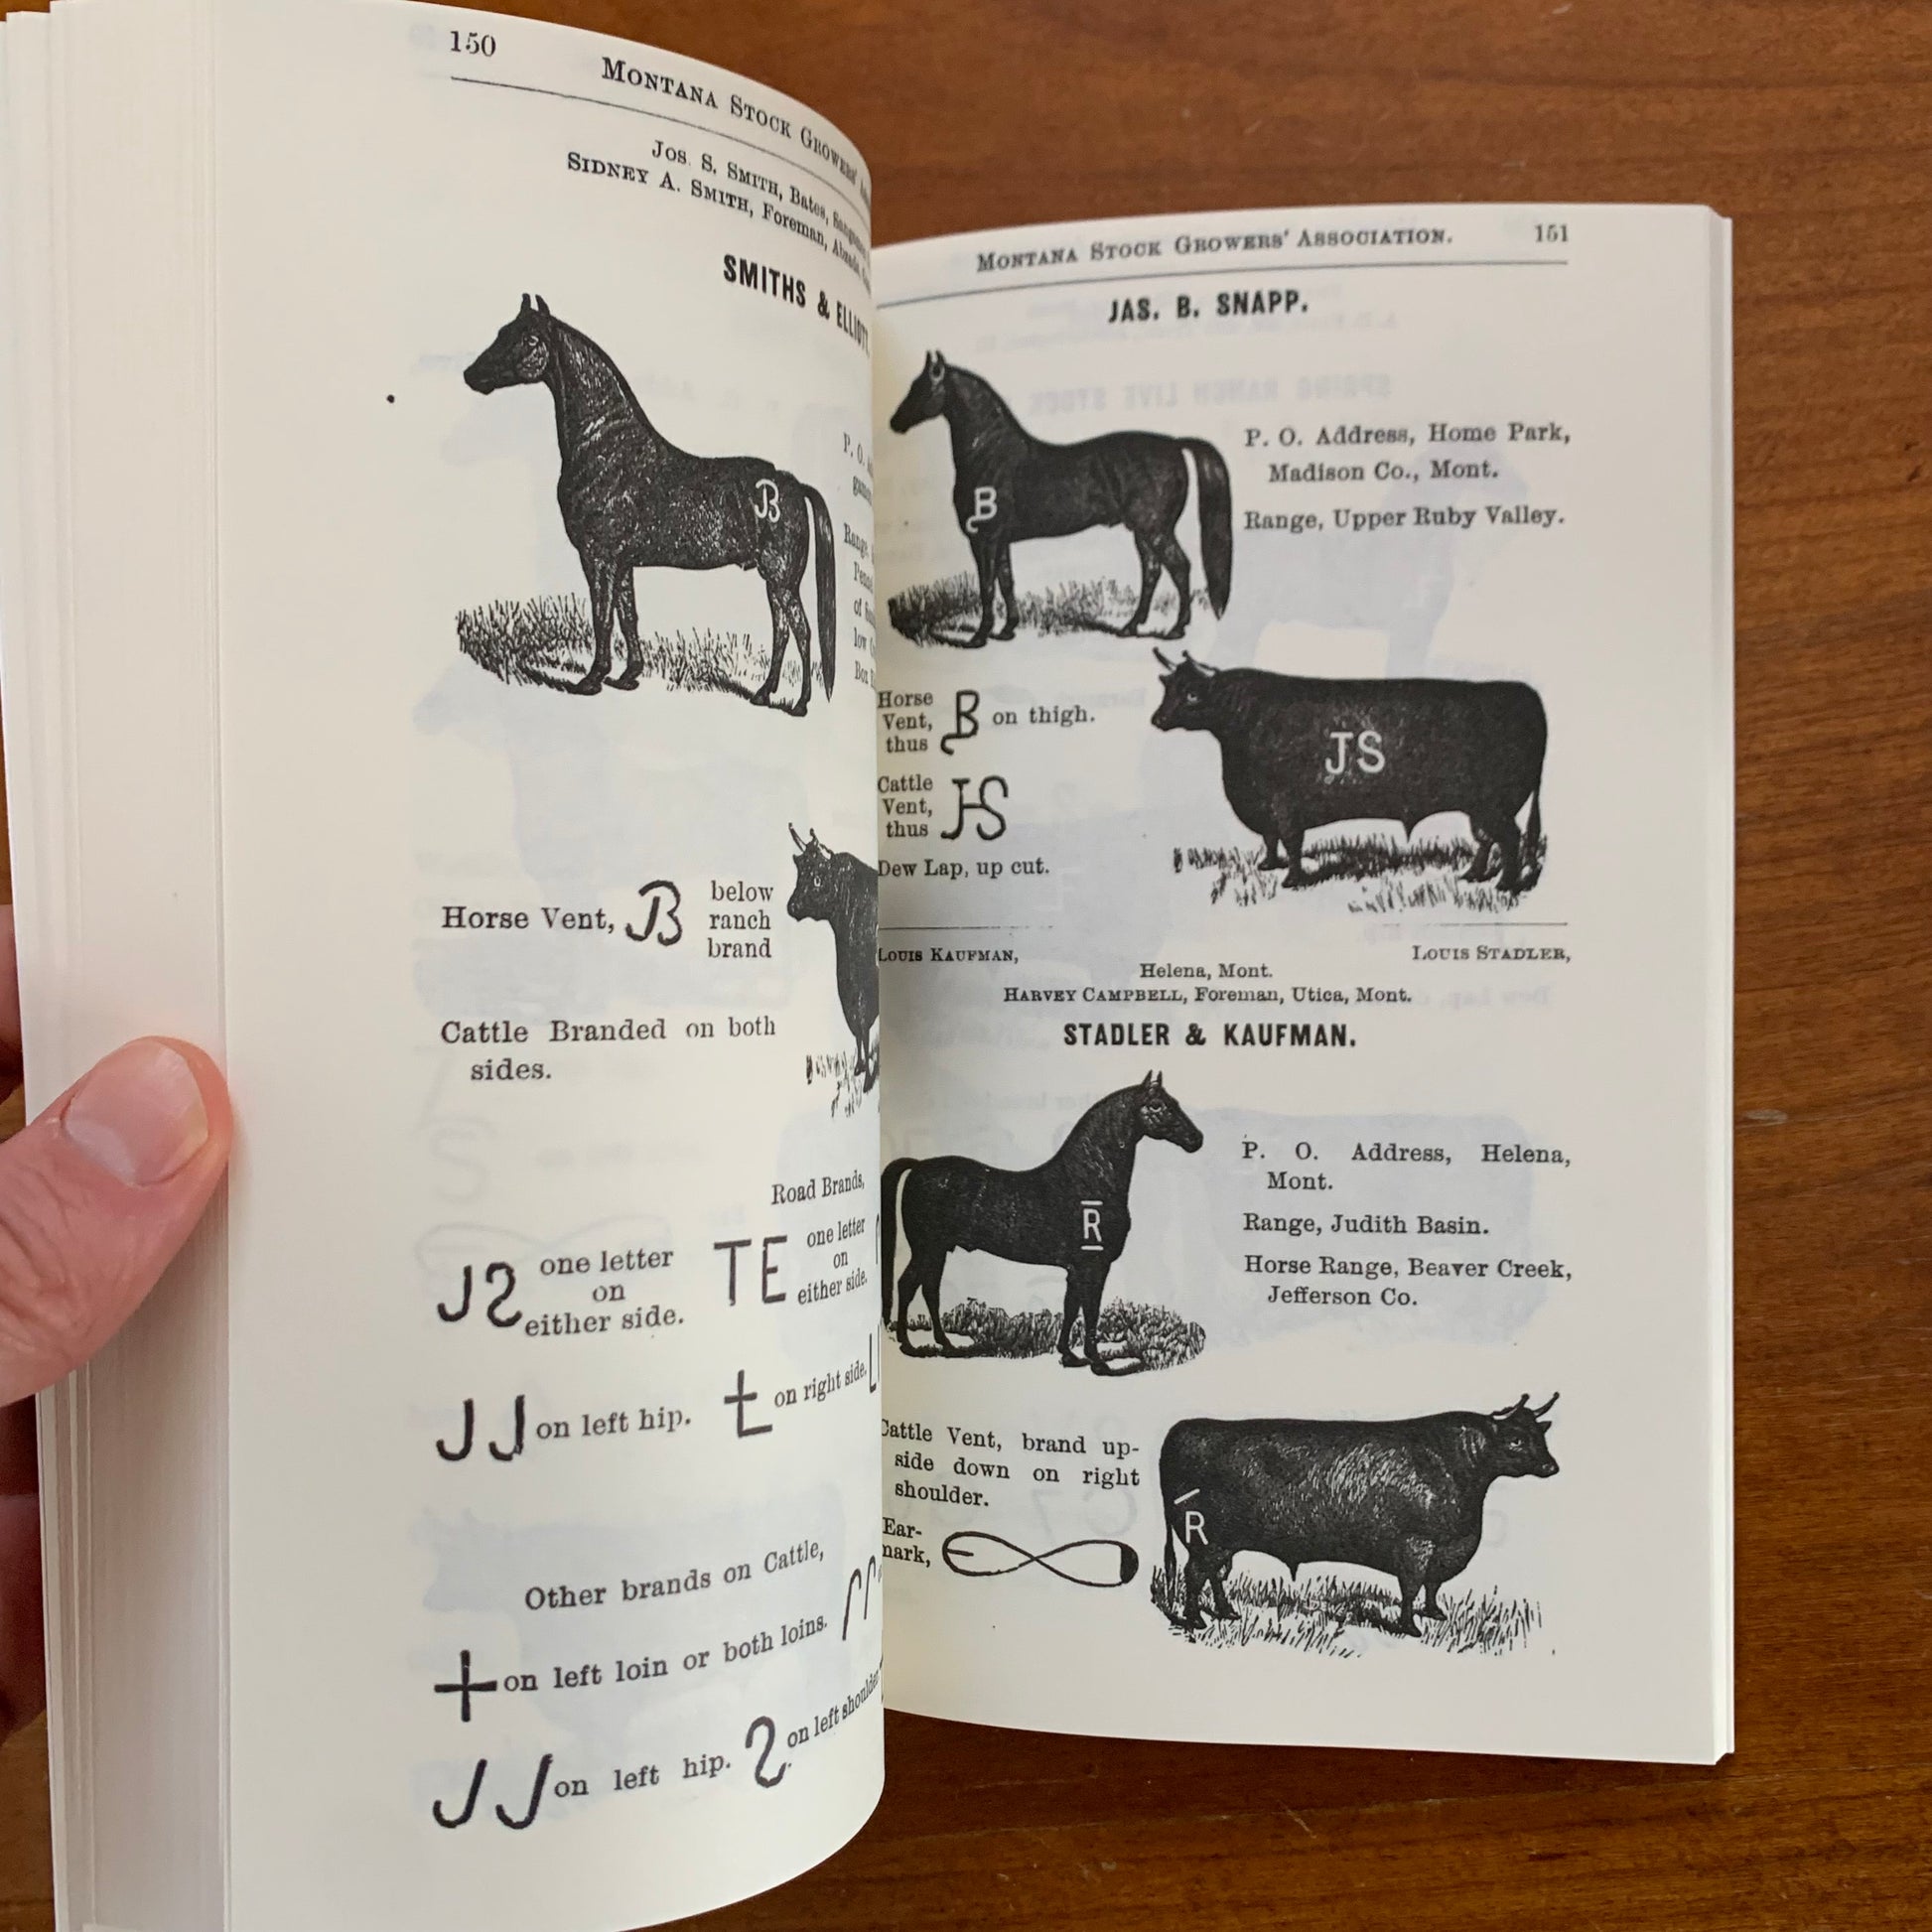 150
MONTANA STOCK GROWERS'
JOS. S. SMITH, Bates,
SIDNEY A. SMITH, Foreman,
SMITHS & ELLIOTT
B
P. O.
Range,
of
low
Horse Vent, JB below
ranch
brand
Cattle Branded on both
sides.
Road Brands,
one letter
on
either side.
TE one letter
on
either side.
JJ on left hip.
t on right side.
Other brands on Cattle,
+ on left loin or both loins.
JJ on left hip.
on left shoulder
MONTANA STOCK GROWERS' ASSOCIATION. 151
JAS. B. SNAPP.
B
P. O. Address, Home Park,
Madison Co., Mont.
Range, Upper Ruby Valley.
Horse
Vent,
thus B on thigh.
Cattle
Vent,
thus JS
Dew Lap, up cut.
JS
LOUIS KAUFMAN, LOUIS STADLER,
Helena, Mont.
HARVEY CAMPBELL, Foreman, Utica, Mont.
STADLER & KAUFMAN.
R
P. O. Address, Helena,
Mont.
Range, Judith Basin.
Horse Range, Beaver Creek,
Jefferson Co.
Cattle Vent, brand up-
side down on right
shoulder.
Ear-
mark,
R